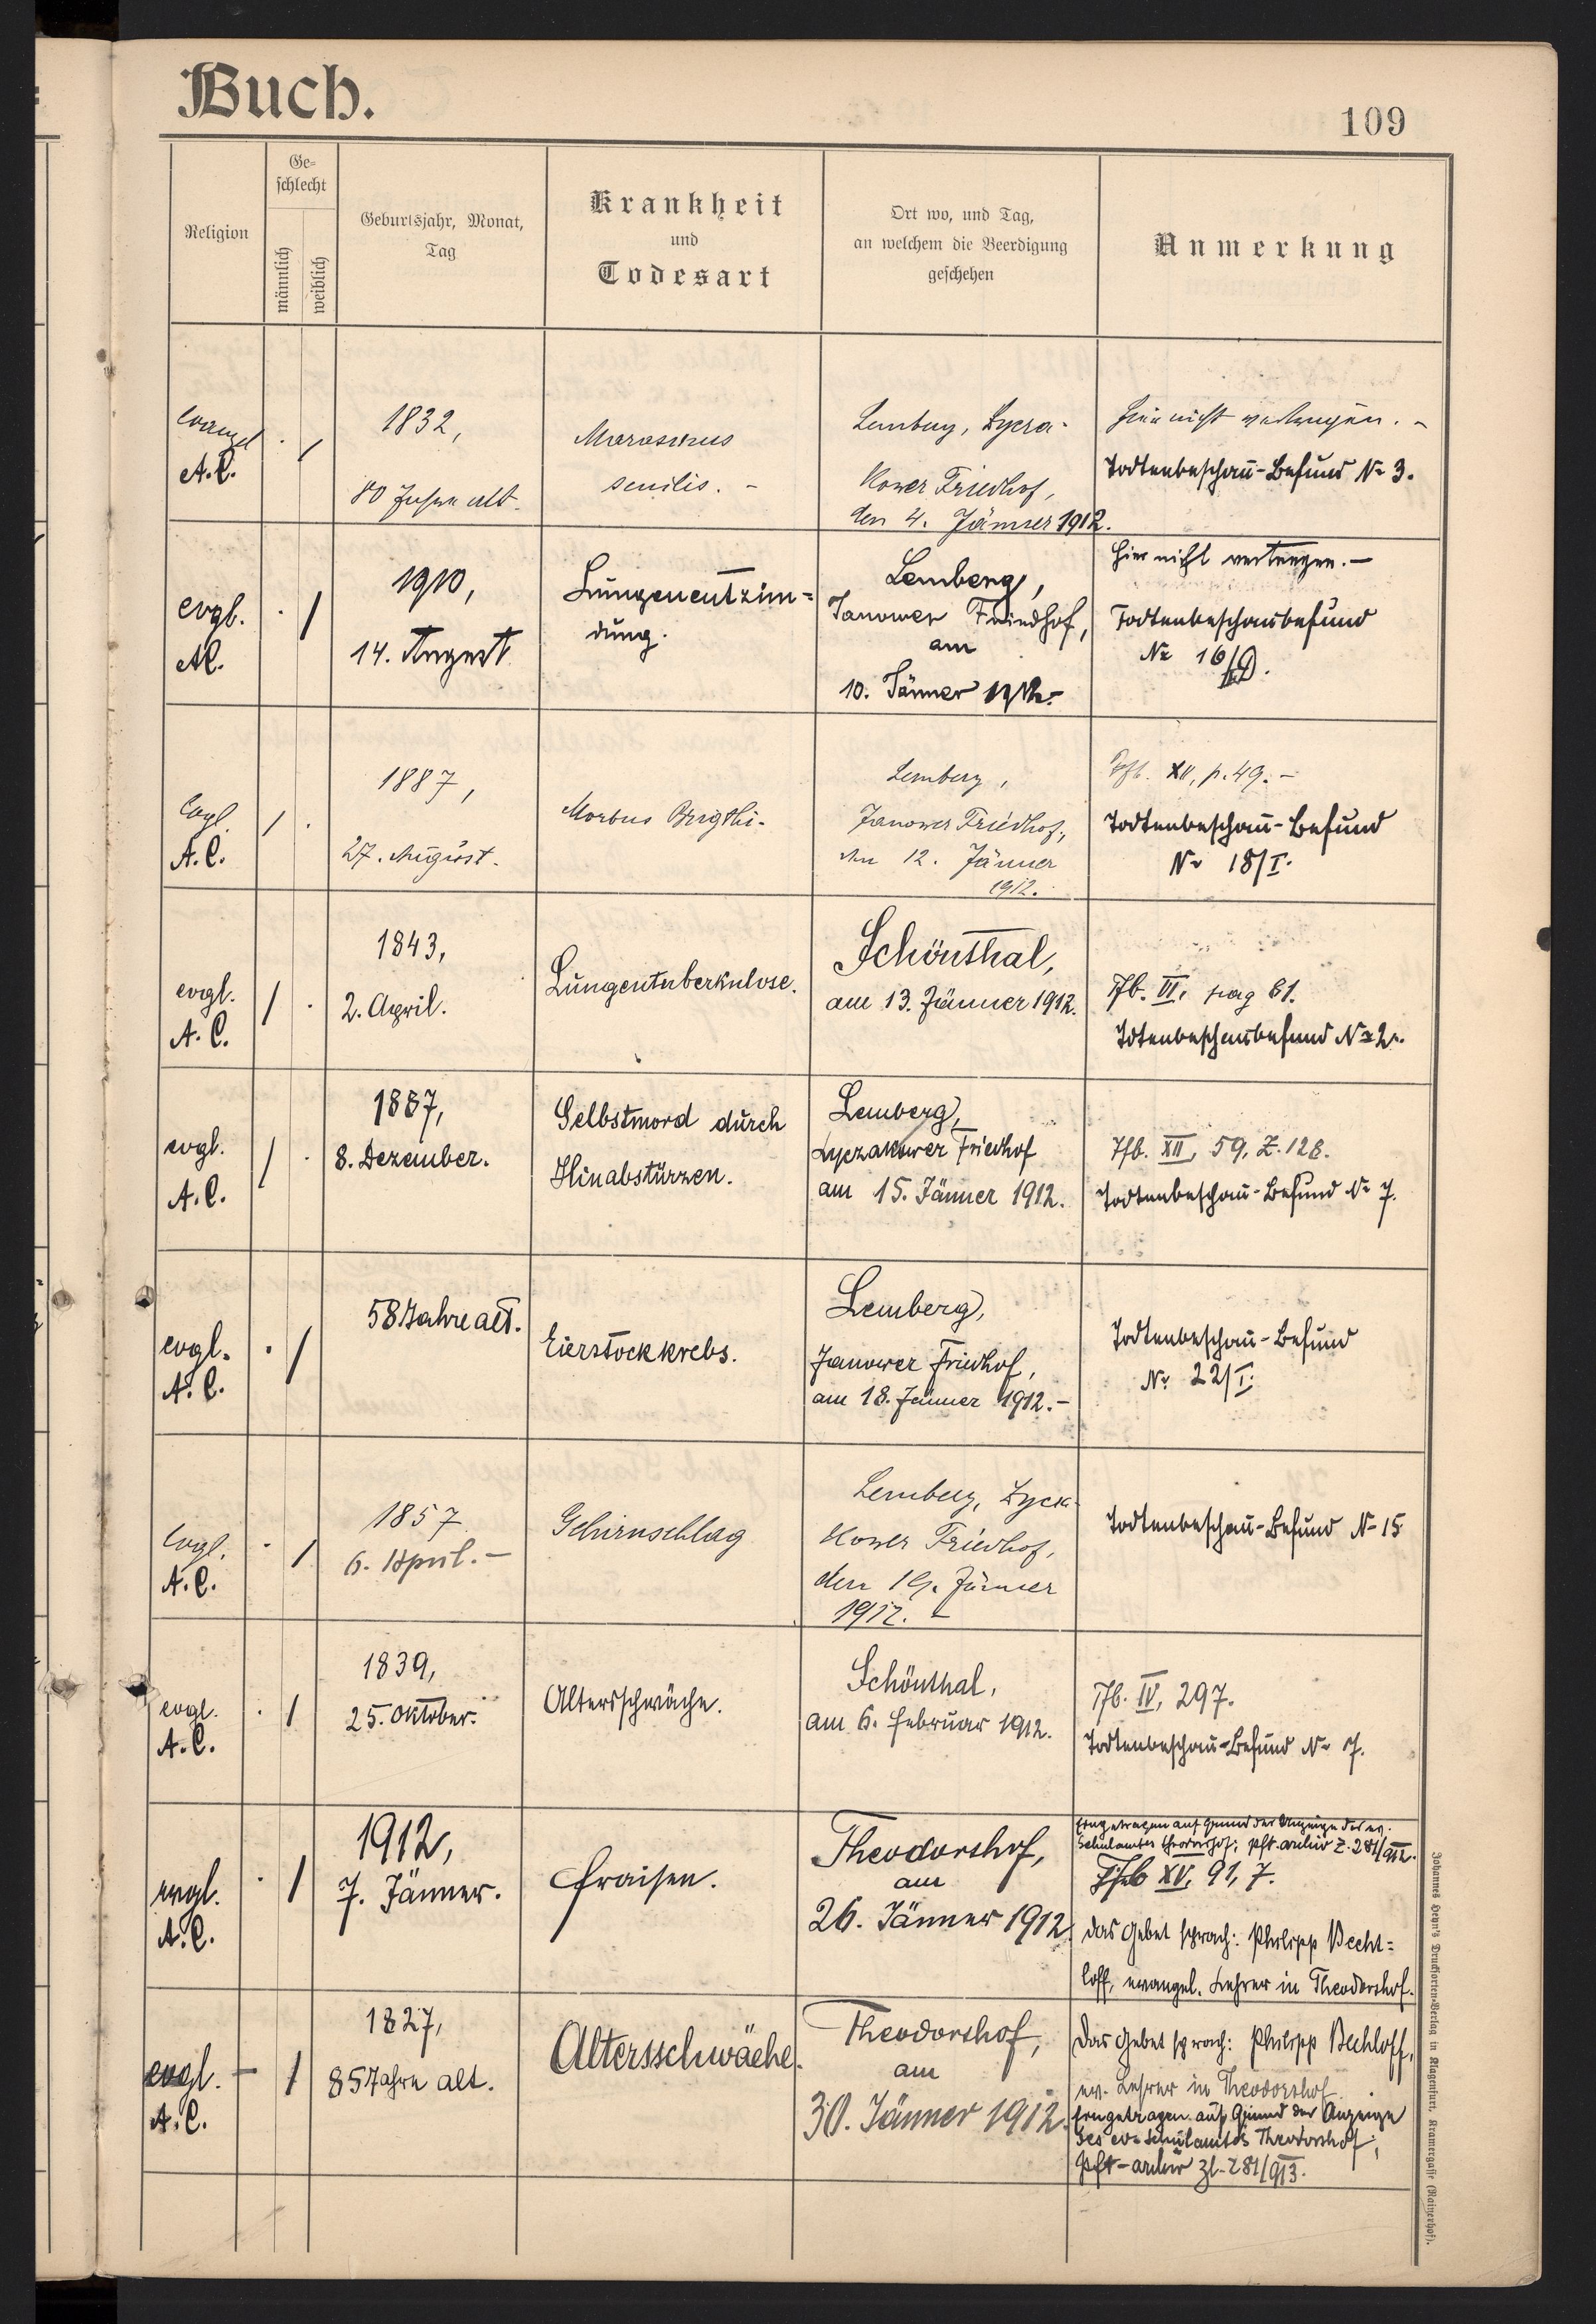 Buch.
109
Religion
Ge-
schlecht
männlich
weiblich
Geburtsjahr, Monat,
Tag
Krankheit
und
Todesart
Ort wo, und Tag,
an welchem die Beerdigung
geschehen
Anmerkung
evangel
A.C.
· /
1832,
80 Jahre alt.
Marasmus
senilis. -
Lemberg, Lycza-
kower Friedhof,
den 4. Jänner 1912.
hier nicht
Todtenbeschau-Befund No 3.
evgl.
AC.
· /
1910,
14. August
Lungenentzün=
dung.
Lemberg,
Janower Friedhof,
am
10. Jänner 1912.-
hier nicht vertragen. -
Todtenbeschaubefund
No 16/
evgl.
A.C.
/ ·
1887,
27. August.
Morbus Brigthi.
Lemberg,
Janower Friedhof,
den 12. Jänner
1912.
XII, p. 49. -
Todtenbeschau-Befund
No 18/I.
evgl.
A.C.
/ ·
1843,
2. April.
Lungentuberkulose.
Schönthal,
am 13. Jänner 1912.
Tfb. VI, pag 61.
Todtenbeschaubefund No 2.
evgl.
A.C.
/ ·
1887,
8. Dezember.
Selbstmord durch
Hinabstürzen.
Lemberg,
Lyczakower Friedhof
am 15. Jänner 1912.
Tfb. XII, 59, Z. 128.
Todtenbeschau-Befund No 7.
evgl.
A.C.
· /
58 Jahre alt.
Eierstockkrebs.
Lemberg,
Janower Friedhof,
am 18. Jänner 1912. -
Todtenbeschau-Befund
No 22/I.
evgl.
A.C.
· /
1857
6. April. -
Gehirnschlag
Lemberg, Lycza-
kower Friedhof,
den 19. Jänner
1912. -
Todtenbeschau-Befund No 15
evgl.
A.C.
· /
1839,
25. Oktober.
Altersschwäche.
Schönthal,
am 6. Februar 1912.
Tfb. IV, 297.
Todtenbeschau-Befund No 17.
evgl.
A.C.
· /
1912,
7. Jänner.
Fraisen.
Theodorshof,
am
26. Jänner 1912.
Eingetragen auf Grund der Anzeige des ev.
Schulamtes Theodorshof; Pft-archiv Z. 281/912.
Tfb XV, 91, 7.
Das Gebet sprach: Philipp Becht=
loff, evangel. Lehrer in Theodorshof.
evgl.
A.C.
- /
1827,
85 Jahre alt.
Altersschwäche.
Theodorshof,
am
30. Jänner 1912.
Das Gebet sprach: Philipp Bechtloff,
ev. Lehrer in Theodorshof
Eingetragen auf Grund der Anzeige
des ev. Schulamtes Theodorshof;
Pft-archiv Zl. 281/913.
Johannes Heyn's Drucksorten-Verlag in Klagenfurt, Kramergasse (Rainerhof).